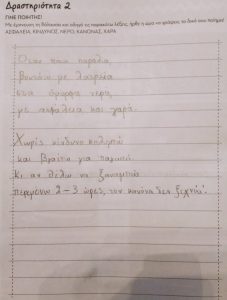 Δραστηριότητα 2
ΓΙΝΕ ΠΟΙΗΤΗΣ!
Με έμπνευση τη θάλασσα και οδηγό τις παρακάτω λέξεις, ήρθε η ώρα να γράψεις το δικό σου ποίημα!
ΑΣΦΑΛΕΙΑ, ΚΙΝΔΥΝΟΣ, ΝΕΡΟ, ΚΑΝΟΝΑΣ, ΧΑΡΑ
Όταν πάω παραλία,
βουτάω με λαχτάρα
στα όμορφα νερά,
με ασφάλεια και χαρά.
Χωρίς κίνδυνο κολυμπώ
και βγαίνω για παγωτό
Κι αν θέλω να ξαναμπώ
περιμένω 2-3 ώρες, τον κανόνα δεν ξεχνώ!